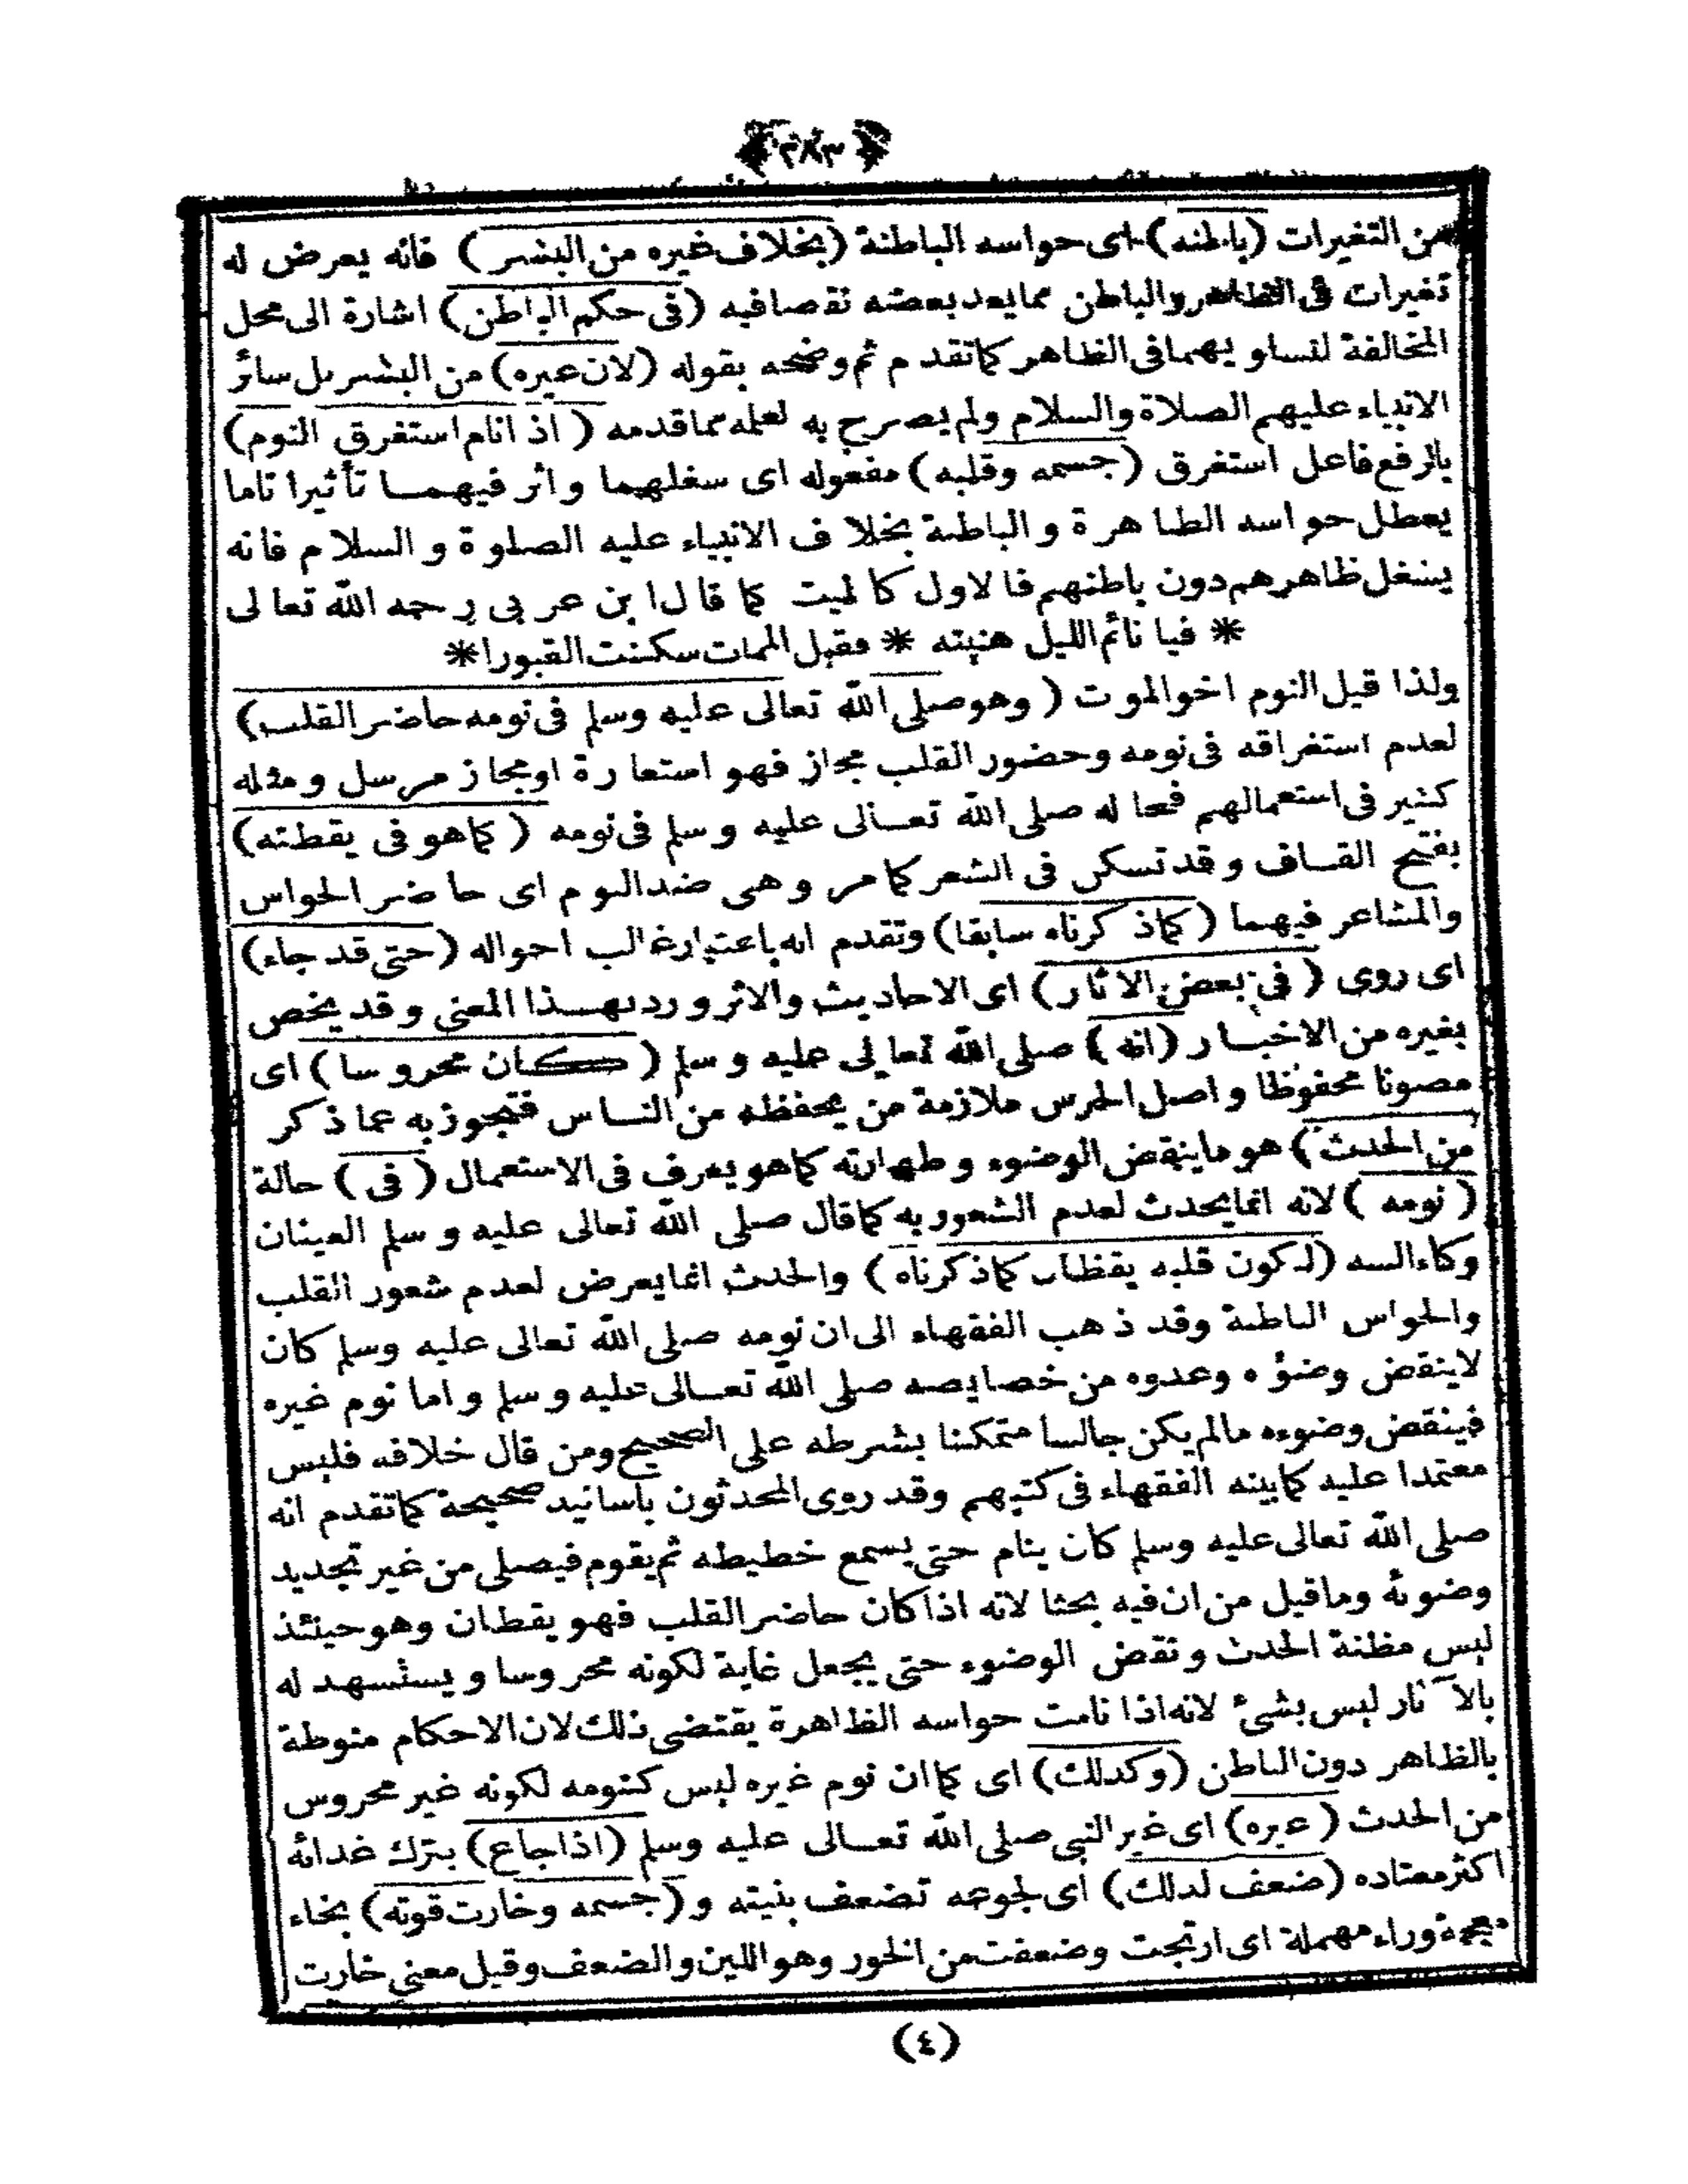 ﴿٣٨٣﴾
من التغيرات (باطنه) اى حواسه الباطنة (بخلاف غيره من البشر) فانه يعرض له
تغيرات فى الظاهر والباطن مما يعد بعضه نقصا فيه (فى حكم الباطن) اشارة الى محل
المخالفة لتساويهما فى الظاهر كما تقدم ثم وضحه بقوله (لان غيره) من البشر بل سائر
الانبياء عليهم الصلاة والسلام ولم يصرح به لعلمه مما قدمه ( اذا نام استغرق النوم)
بالرفع فاعل استغرق (جسمه وقلبه) مفعوله اى شغلهما واثر فيهما تأثيرا تاما
يعطل حواسه الظاهرة والباطنة بخلاف الانبياء عليه الصلوة والسلام فانه
يشغل ظاهرهم دون باطنهم فالاول كالميت كما قال ابن عربى رحمه الله تعالى
* فيا نائم الليل هنيته * فقبل الممات سكنت القبورا *
ولذا قيل النوم اخو الموت ( وهو صلى الله تعالى عليه وسلم فى نومه حاضر القلب)
لعدم استغراقه فى نومه وحضور القلب مجاز فهو استعارة او مجاز مرسل ومثله
كثير فى استعمالهم فحاله صلى الله تعالى عليه وسلم فى نومه ( كما هو فى يقظته)
بفتح القاف وقد تسكن فى الشعر كما مر وهى ضد النوم اى حاضر الحواس
والمشاعر فيهما (كما ذكرناه سابقا) وتقدم انه باعتبار غالب احواله (حتى قد جاء)
اى روى ( فى بعض الاثار) اى الاحاديث والاثر ورد بهذا المعنى وقد يخص
بغيره من الاخبار (انه) صلى الله تعالى عليه وسلم ( كان محروسا ) اى
مصونا محفوظا واصل الحرس ملازمة من يحفظه من الناس فتجوز به عما ذكر
من الحدث ) هو ما ينقض الوضوء وطهارته كما هو يعرف فى الاستعمال ( فى ) حالة
( نومه ) لانه انما يحدث لعدم الشعور به كما قال صلى الله تعالى عليه وسلم العينان
وكاء السه (لكون قلبه يقظان كما ذكرناه ) والحدث انما يعرض لعدم شعور القلب
والحواس الباطنة وقد ذهب الفقهاء الى ان نومه صلى الله تعالى عليه وسلم كان
لا ينقض وضوئه وعدوه من خصايصه صلى الله تعالى عليه وسلم واما نوم غيره
فينقض وضوءه مالم يكن جالسا متمكنا بشرطه على الصحيح ومن قال خلافه فليس
معتمدا عليه كما بينه الفقهاء فى كتبهم وقد روى المحدثون باسانيد صحيحة كما تقدم انه
صلى الله تعالى عليه وسلم كان ينام حتى يسمع خطيطه ثم يقوم فيصلى من غير تجديد
وضوئه وما قيل من ان فيه بحثا لانه اذا كان حاضر القلب فهو يقظان وهو حينئذ
ليس مظنة الحدث ونقض الوضوء حتى يجعل غاية لكونه محروسا ويستشهد له
بالآثار ليس بشئ لانه اذا نامت حواسه الظاهرة يقتضى ذلك لان الاحكام منوطة
بالظاهر دون الباطن (وكذلك) اى كما ان نوم غيره ليس كنومه لكونه غير محروس
من الحدث (غيره) اى غير النبى صلى الله تعالى عليه وسلم (اذا جاع) بترك غدائه
اكثر معتاده (ضعف لذلك) اى لجوعه تضعف بنيته و(جسمه وخارت قوته) بخاء
معجمة وراء مهملة اى ارتجت وضعفت من الخور وهو اللين والضعف وقيل معنى خارت
(٤)